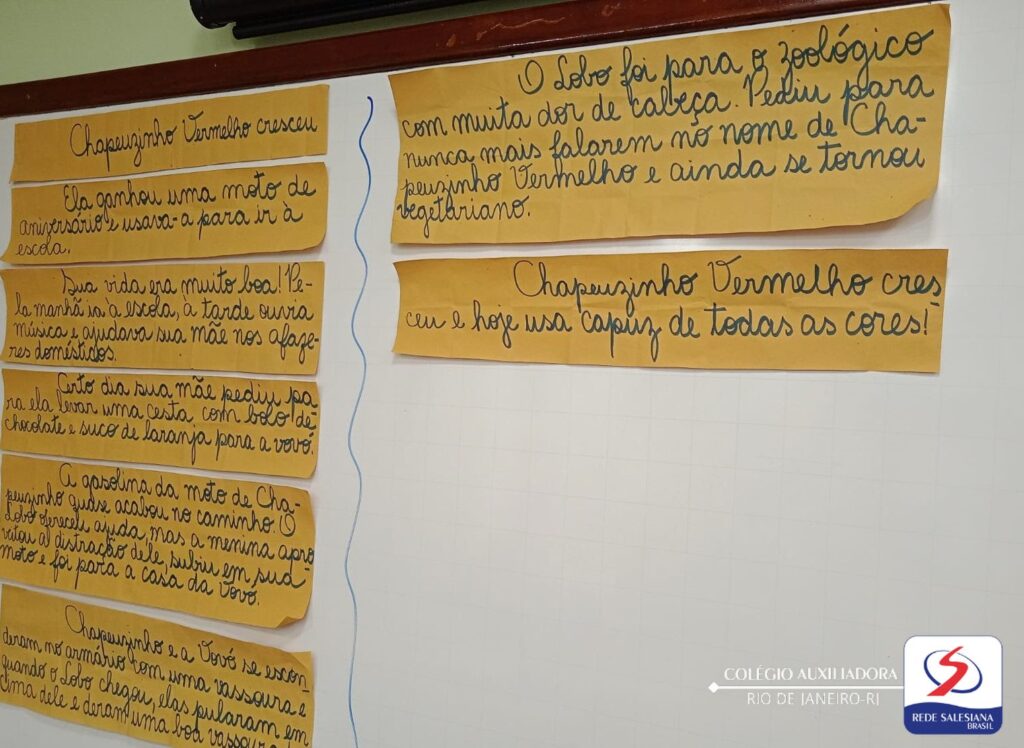 Chapeuzinho Vermelho cresceu
Ela ganhou uma moto de
aniversário e usava-a para ir à
escola.
Sua vida era muito boa! Pe-
la manhã ia à escola, à tarde ouvia
música e ajudava sua mãe nos afaze-
res domésticos.
Certo dia sua mãe pediu pa
ra ela levar uma cesta com bolo de
chocolate e suco de laranja para a vovó.
A gasolina da moto de Cha-
peuzinho quase acabou no caminho. O
Lobo ofereceu ajuda, mas a menina apro
veitou a distração dele, subiu em sua
moto e foi para a casa da Vovó.
Chapeuzinho e a Vovó se escon-
deram no armário com uma vassoura e
quando o Lobo chegou, elas pularam em
cima dele e deram uma boa
O Lobo foi para o zoológico
com muita dor de cabeça. Pediu para
nunca mais falarem no nome de Cha-
peuzinho Vermelho e ainda se tornou
vegetariano.
Chapeuzinho Vermelho cres
ceu e hoje usa capuz de todas as cores!
COLÉGIO AUXILIADORA
RIO DE JANEIRO-RJ
REDE SALESIANA
BRASIL